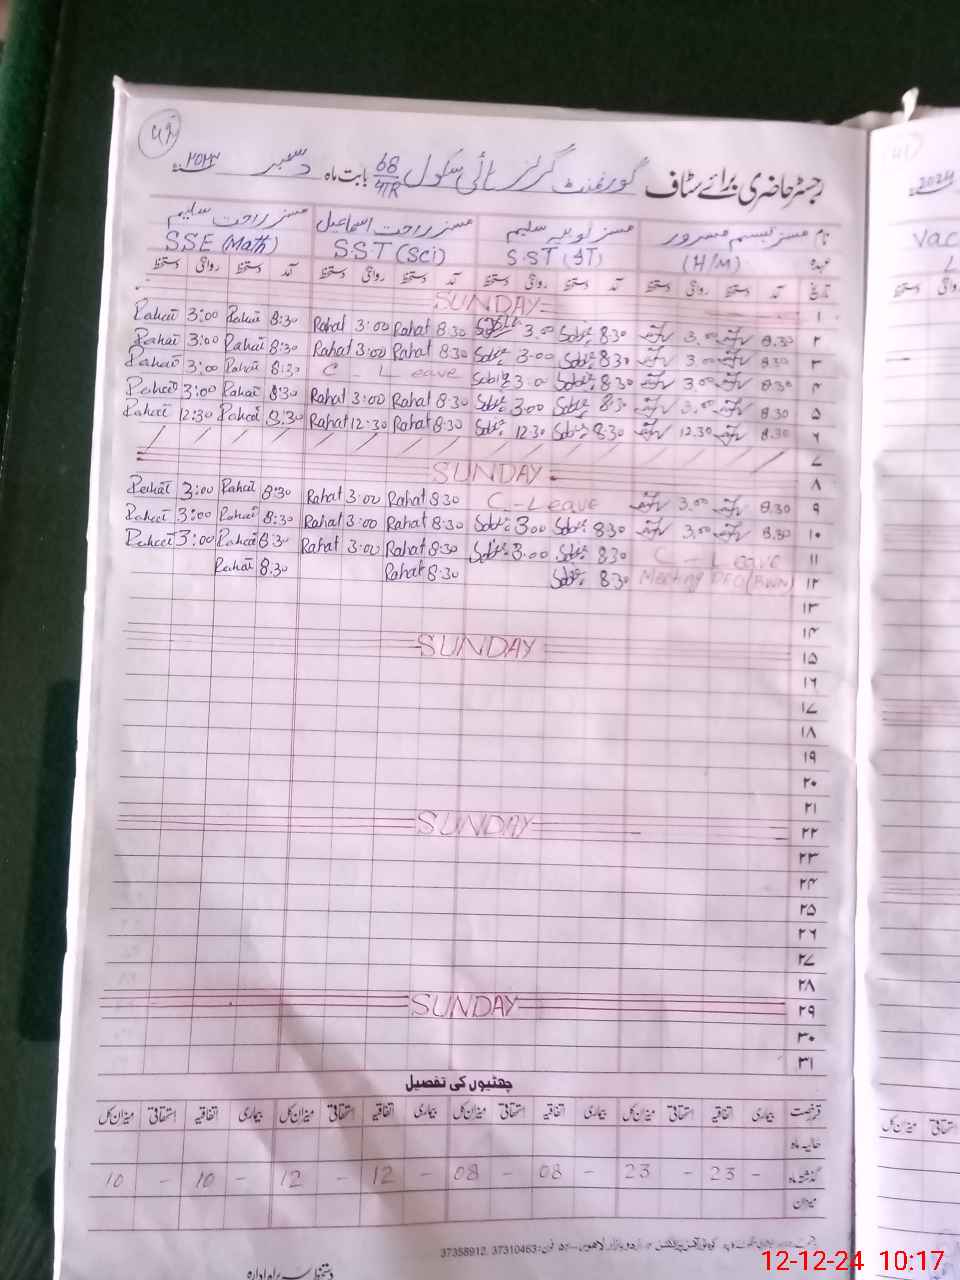 رجسٹر حاضری برائے سٹاف گورنمنٹ گرلز ہائی سکول 68/4R بابت ماہ دسمبر ۲۰۲۴ء
نام مسز تبسم مسرور مسز ثوبیہ سلیم مسز راحت اسماعیل مسز راحت سلیم
عہدہ (H/M) S.ST (IT) S.S.T (Sci) SSE (Math)
تاریخ آمد دستخط روانگی دستخط آمد دستخط روانگی دستخط آمد دستخط روانگی دستخط آمد دستخط روانگی دستخط
۱ SUNDAY
Rahat 3:00 Rahat 8:30 Rahat 3:00 Rahat 8.30 3.00 8.30 3.00 8.30 ۲
Rahat 3:00 Rahat 8:30 Rahat 3:00 Rahat 8.30 3.00 8.30 3.00 8.30 ۳
Rahat 3:00 Rahat 8:30 C - Leave 3.00 8.30 3.00 8.30 ۴
Rahat 3:00 Rahat 8:30 Rahat 3:00 Rahat 8.30 3.00 8.30 3.00 8.30 ۵
Rahat 12:30 Rahat 8:30 Rahat 12:30 Rahat 8.30 12.30 8.30 12.30 8.30 ۶
۷
SUNDAY ۸
Rahat 3:00 Rahat 8:30 Rahat 3:00 Rahat 8.30 C - Leave 3.00 8.30 ۹
Rahat 3:00 Rahat 8:30 Rahat 3:00 Rahat 8.30 3.00 8.30 3.00 8.30 ۱۰
Rahat 3:00 Rahat 8:30 Rahat 3:00 Rahat 8.30 3.00 8.30 C - Leave ۱۱
Rahat 8.30 Rahat 8.30 8.30 Meeting (BWN) ۱۲
۱۳
۱۴
SUNDAY ۱۵
۱۶
۱۷
۱۸
۱۹
۲۰
۲۱
SUNDAY ۲۲
۲۳
۲۴
۲۵
۲۶
۲۷
۲۸
SUNDAY ۲۹
۳۰
۳۱
چھٹیوں کی تفصیل
قسم رخصت بیماری اتفاقیہ استحقاقی میزان کل بیماری اتفاقیہ استحقاقی میزان کل بیماری اتفاقیہ استحقاقی میزان کل بیماری اتفاقیہ استحقاقی میزان کل
حالیہ ماہ
گذشتہ ماہ - 23 - 23 - 08 - 08 - 12 - 12 - 10 - 10
میزان
37358912, 37310463
دستخط سربراہ ادارہ
2024
Vac
12-12-24 10:17